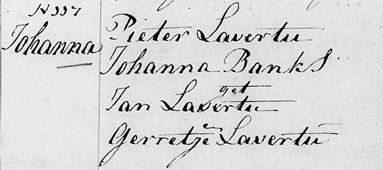 N 337
Johanna
Pieter Lavertu
Johanna Banks
get
Jan Lavertu
Gerretje Lavertu